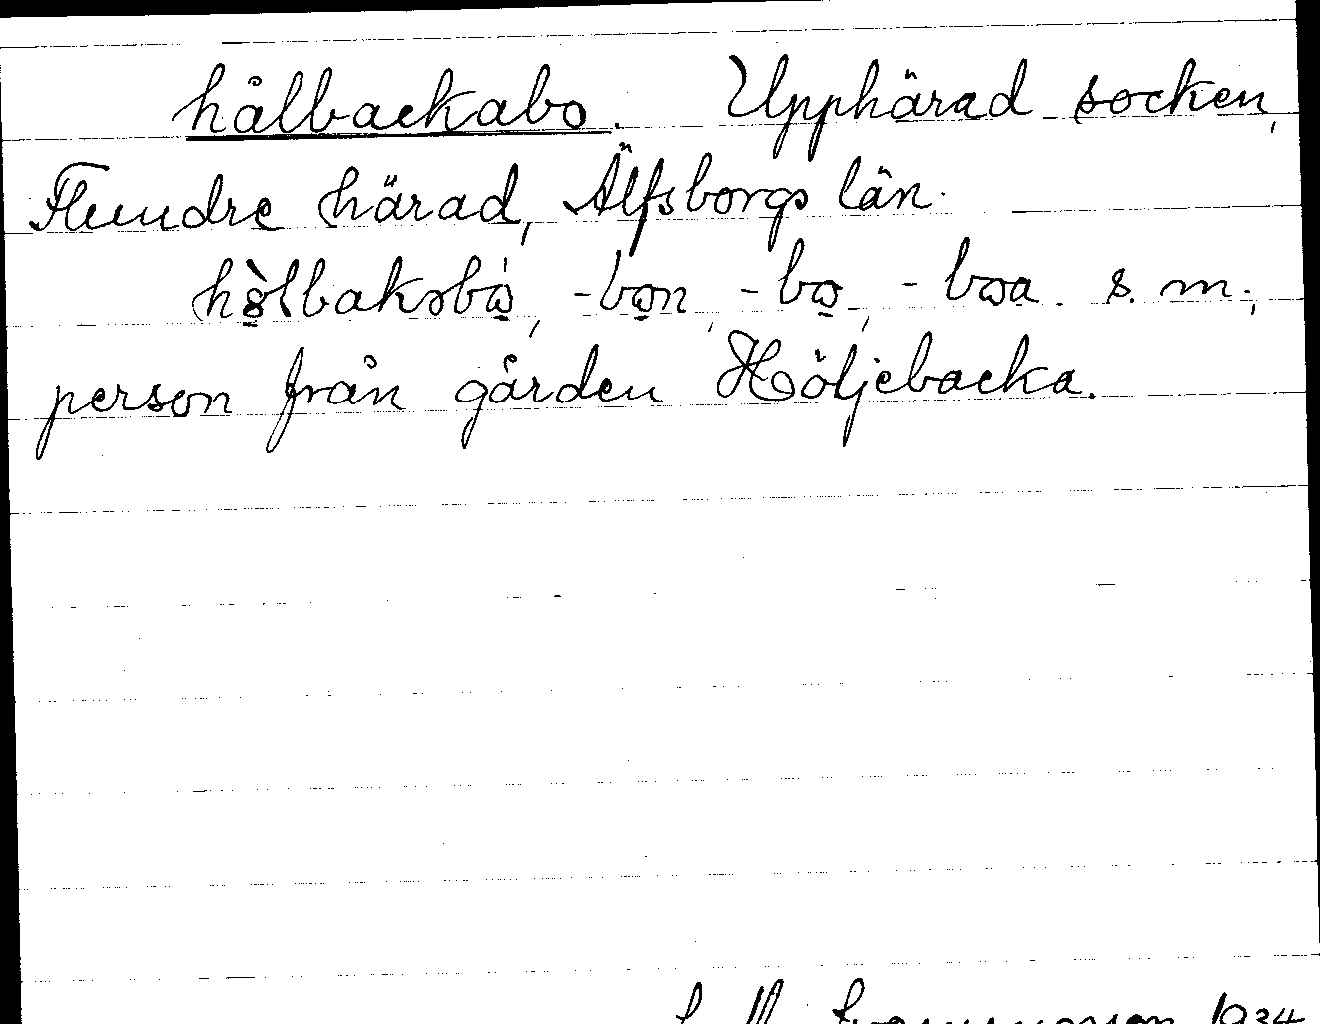 hålbackabo. Upphärad socken,
Flundre härad, Älfsborgs län.
hòlbakəbó, -bon, -bo, -boa. s. m.;
person från gården Höljebacka.
1934